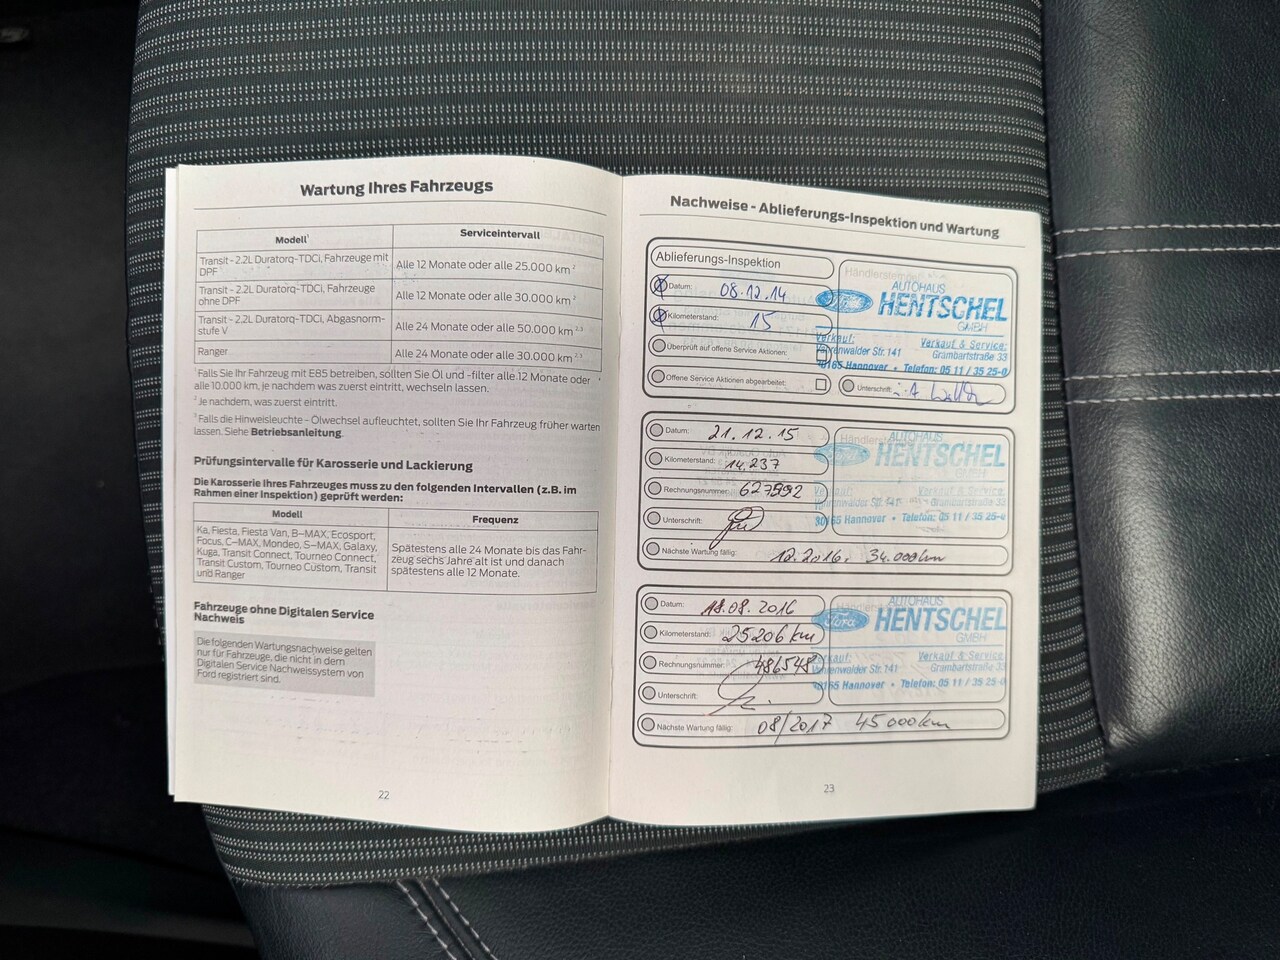 Wartung Ihres Fahrzeugs
Modell¹ Serviceintervall
Transit - 2.2L Duratorq-TDCi, Fahrzeuge mit
DPF
Alle 12 Monate oder alle 25.000 km ²
Transit - 2.2L Duratorq-TDCi, Fahrzeuge
ohne DPF
Alle 12 Monate oder alle 30.000 km ²
Transit - 2.2L Duratorq-TDCi, Abgasnorm-
stufe V
Alle 24 Monate oder alle 50.000 km ²,³
Ranger Alle 24 Monate oder alle 30.000 km ²,³
¹ Falls Sie Ihr Fahrzeug mit E85 betreiben, sollten Sie Öl und -filter alle 12 Monate oder
alle 10.000 km, je nachdem was zuerst eintritt, wechseln lassen.
² Je nachdem, was zuerst eintritt.
³ Falls die Hinweisleuchte - Ölwechsel aufleuchtet, sollten Sie Ihr Fahrzeug früher warten
lassen. Siehe Betriebsanleitung.
Prüfungsintervalle für Karosserie und Lackierung
Die Karosserie Ihres Fahrzeuges muss zu den folgenden Intervallen (z.B. im
Rahmen einer Inspektion) geprüft werden:
Modell Frequenz
Ka, Fiesta, Fiesta Van, B-MAX, Ecosport,
Focus, C-MAX, Mondeo, S-MAX, Galaxy,
Kuga, Transit Connect, Tourneo Connect,
Transit Custom, Tourneo Custom, Transit
und Ranger
Spätestens alle 24 Monate bis das Fahr-
zeug sechs Jahre alt ist und danach
spätestens alle 12 Monate.
Fahrzeuge ohne Digitalen Service
Nachweis
Die folgenden Wartungsnachweise gelten
nur für Fahrzeuge, die nicht in dem
Digitalen Service Nachweissystem von
Ford registriert sind.
22
Nachweise - Ablieferungs-Inspektion und Wartung
Ablieferungs-Inspektion
Datum: 08.12.14
Kilometerstand: 15
Überprüft auf offene Service Aktionen:
Offene Service Aktionen abgearbeitet:
Händlerstempel
AUTOHAUS
HENTSCHEL
GMBH
Verkauf: Verkauf & Service:
Vahrenwalder Str. 141 Grambartstraße 33
30165 Hannover • Telefon: 05 11 / 35 25-0
Unterschrift:
Datum: 21.12.15
Kilometerstand: 14.237
Rechnungsnummer:
Unterschrift:
AUTOHAUS
HENTSCHEL
GMBH
Verkauf: Verkauf & Service:
Vahrenwalder Str. 141 Grambartstraße 33
30165 Hannover • Telefon: 05 11 / 35 25-0
Nächste Wartung fällig: 12.2016. 34.000km
Datum: 18.08.2016
Kilometerstand: 25206 km
Rechnungsnummer: 486548
Unterschrift:
AUTOHAUS
Ford HENTSCHEL
GMBH
Verkauf: Verkauf & Service:
Vahrenwalder Str. 141 Grambartstraße 33
30165 Hannover • Telefon: 05 11 / 35 25-0
Nächste Wartung fällig: 08/2017 45000km
23